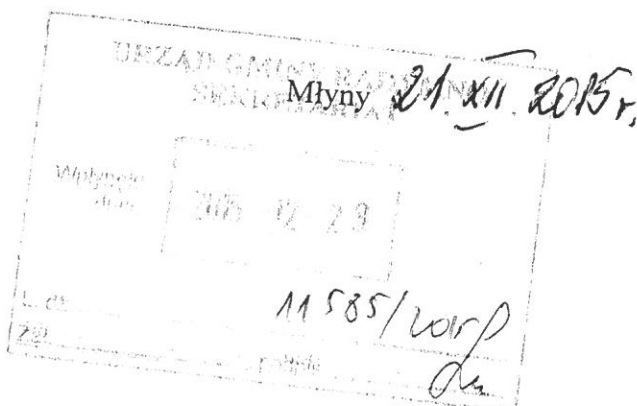 URZĄD GMINY RADYMNO
SEKRETARIAT
Młyny 21 XII 2015 r.
Wpłynęło
dnia
2015 12 29
11585/2015
L. dz.
Zał. podpis